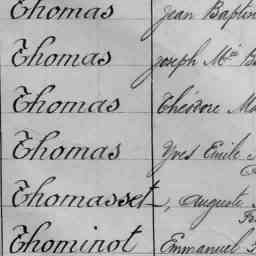 Thomas Jean Baptis
Thomas Joseph Mie
Thomas Théodore Ma
Thomas Yves Emile
Thomasset, Auguste
Thominot Emmanuel